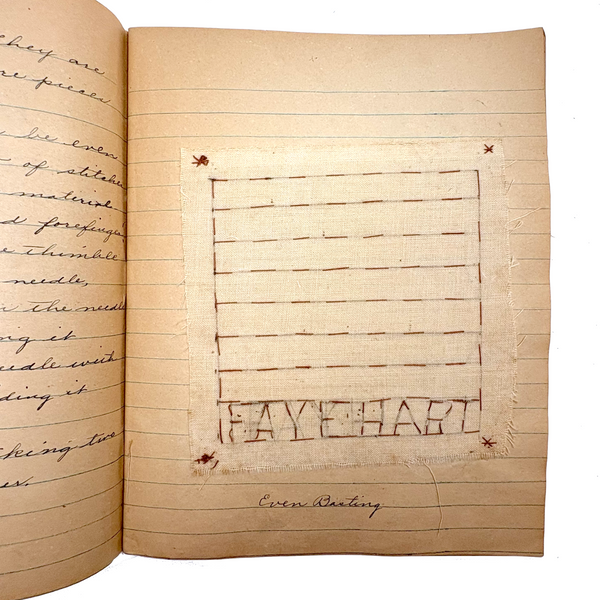 they are
pieces
be even
of stitches
material
forefinger
thimble
needle,
the needle
it
needle with
it
two
FAYE HART
Even Basting